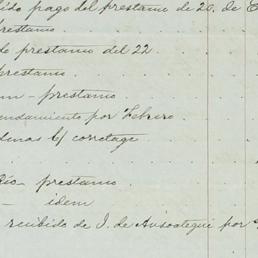 pago del prestamo de 20. de E
prestamo
prestamo del 22
prestamo.
— prestamo
por Febrero
c/ corretage
Rio — prestamo.
— idem
recibido de J. de Ansoategui por